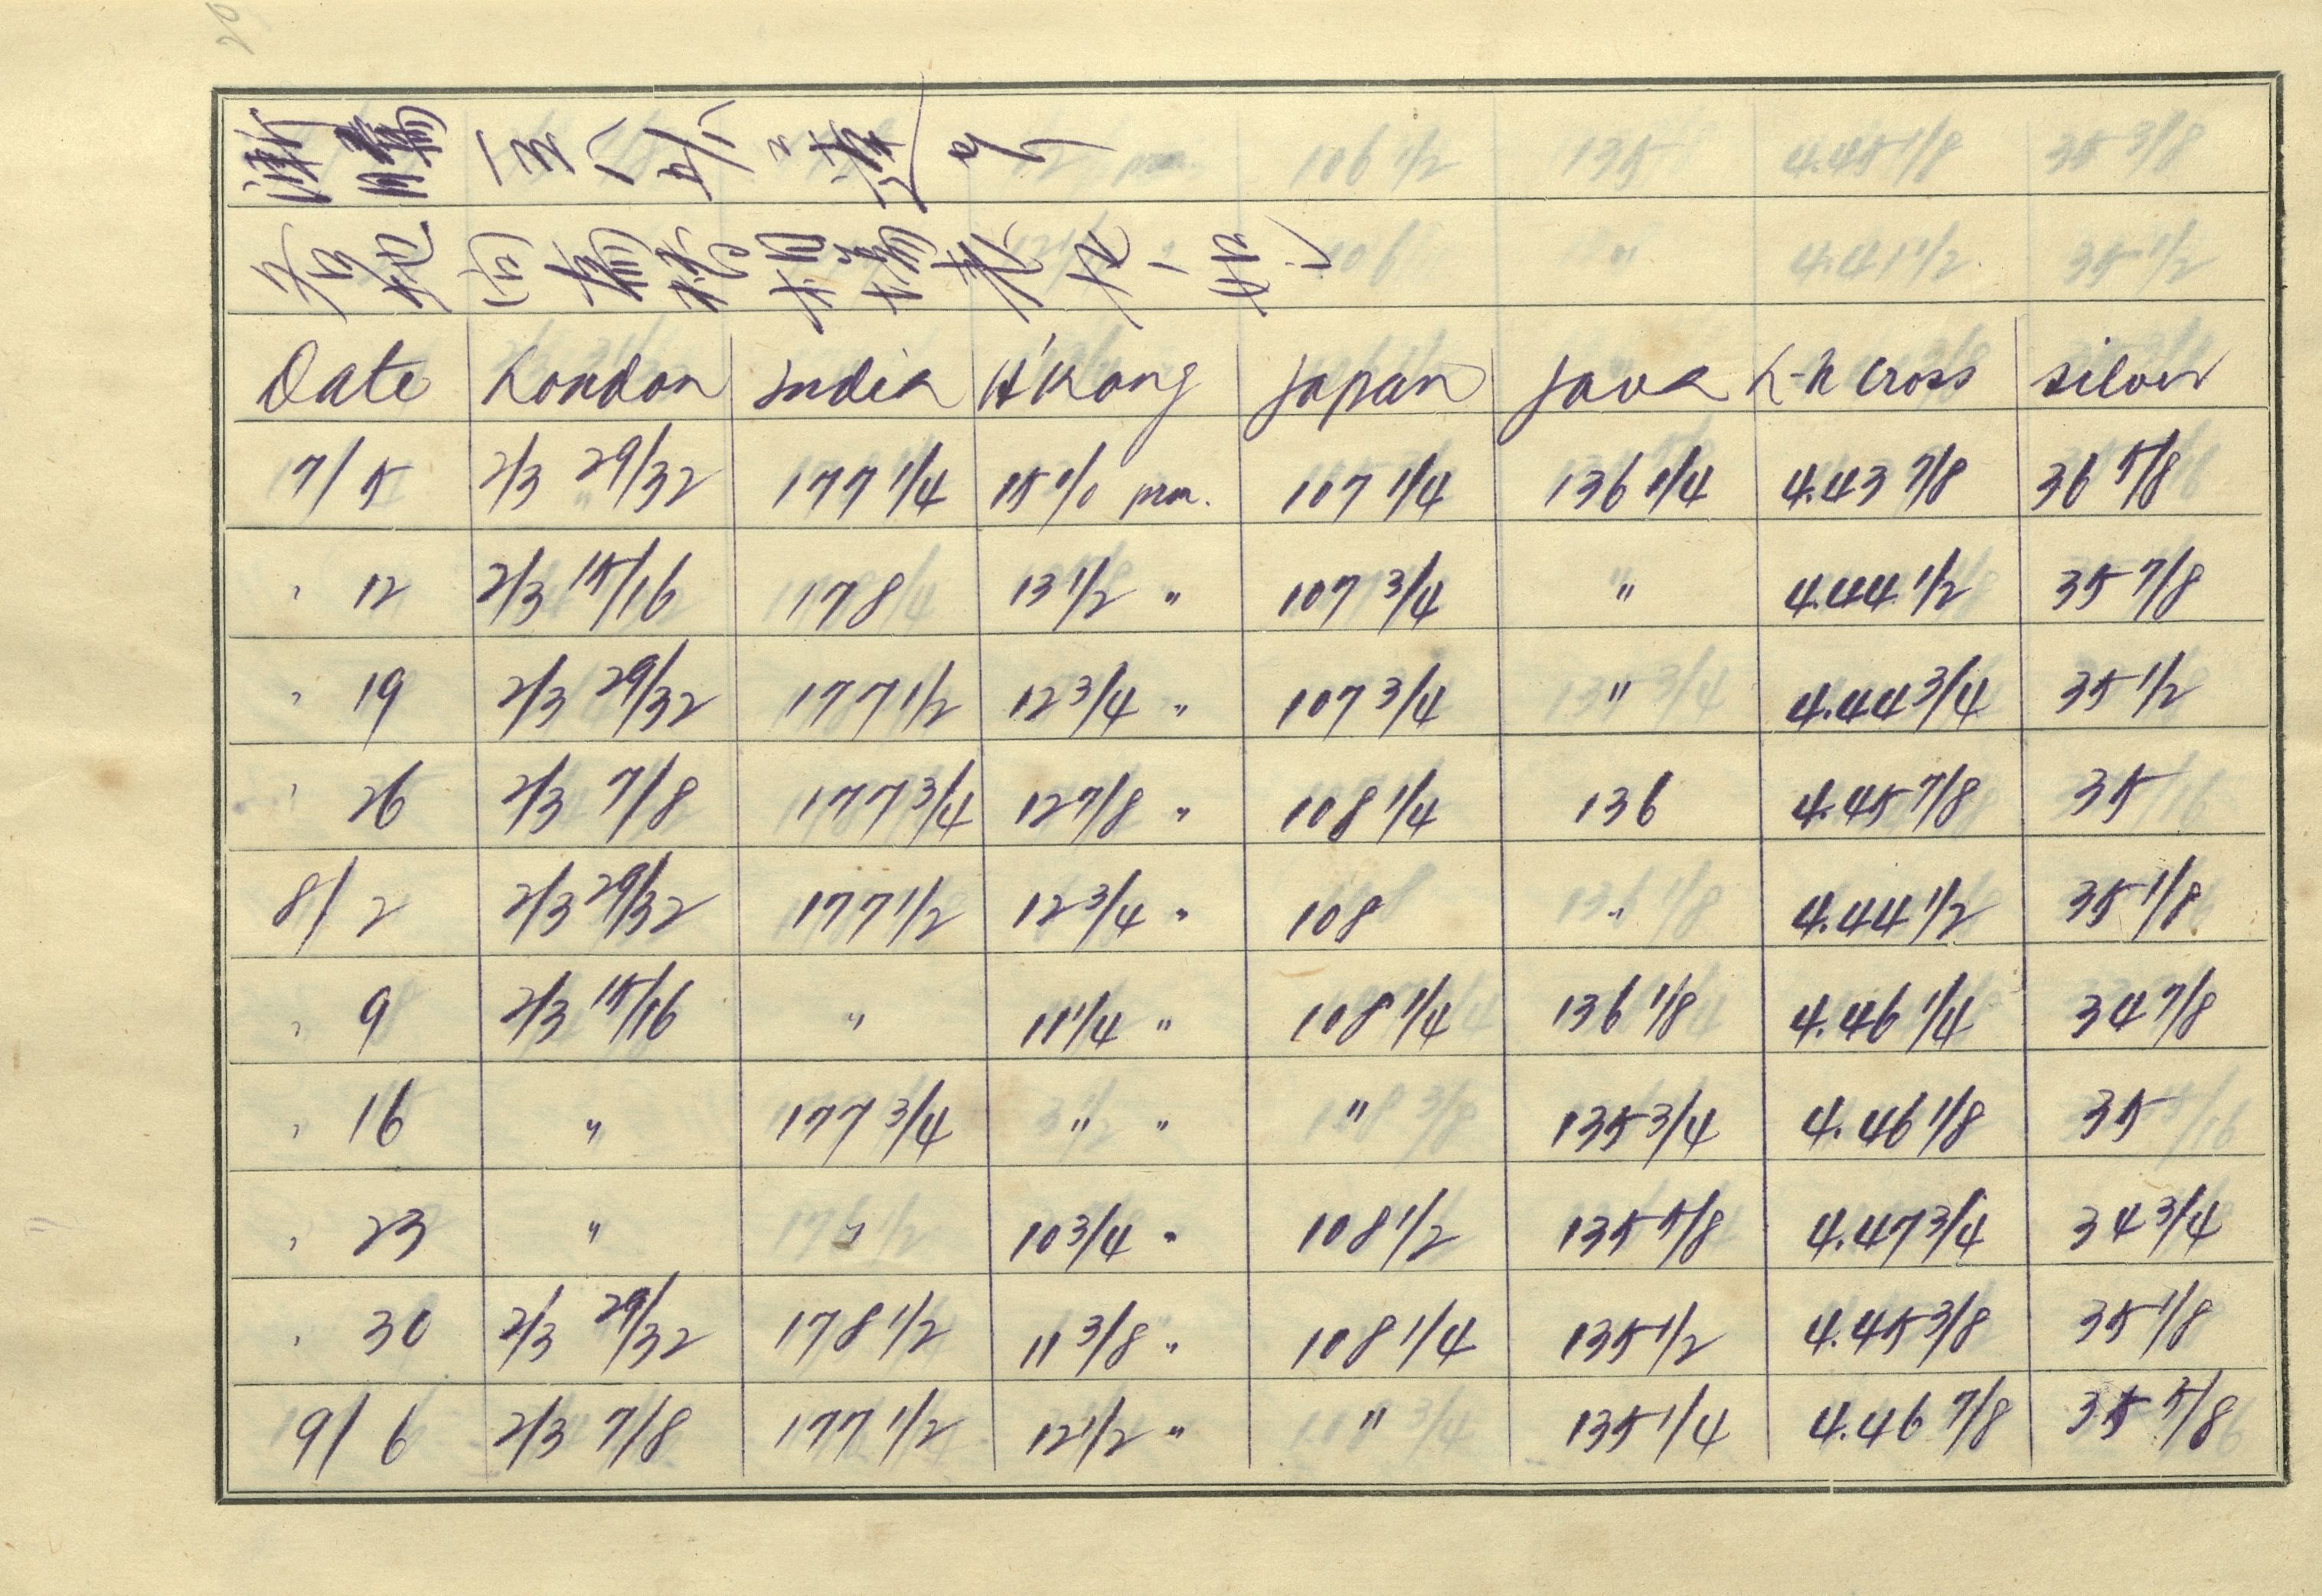 漸騰 ニ達
各地向爲替相場表左ノ如シ
Date London India H'Kong Japan Java L-N Cross Silver
7/5 2/3 29/32 177 1/4 15% pm. 107 1/4 136 1/4 4.43 7/8 36 5/8
" 12 2/3 15/16 178 13 1/2 " 107 3/4 " 4.44 1/2 35 7/8
" 19 2/3 29/32 177 1/2 12 3/4 " 107 3/4 " 4.44 3/4 35 1/2
" 26 2/3 7/8 177 3/4 12 7/8 " 108 1/4 136 4.45 7/8 35
8/2 2/3 29/32 177 1/2 12 3/4 " 108 " 4.44 1/2 35 1/8
" 9 2/3 15/16 " 11 1/4 " 108 1/4 136 1/8 4.46 1/4 34 7/8
" 16 " 177 3/4 " " " 135 3/4 4.46 1/8 35
" 23 " " 10 3/4 " 108 1/2 135 5/8 4.47 3/4 34 3/4
" 30 2/3 29/32 178 1/2 11 3/8 " 108 1/4 135 1/2 4.45 3/8 35 1/8
9/6 2/3 7/8 177 1/2 12 1/2 " " 135 1/4 4.46 7/8 35 5/8